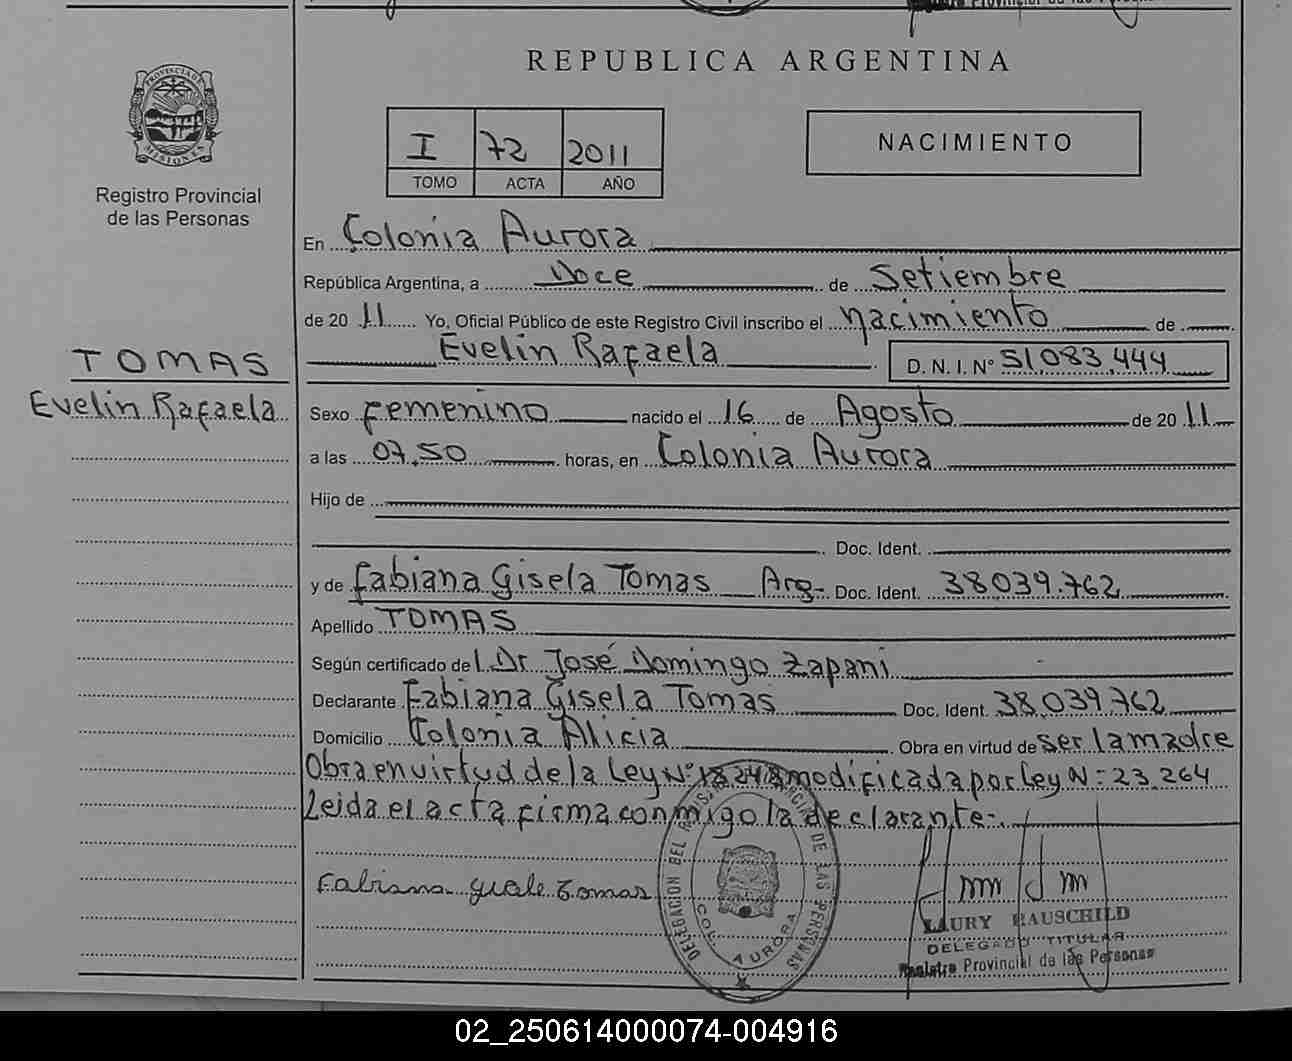 REPUBLICA ARGENTINA
PROVINCIA DE
MISIONES
Registro Provincial
de las Personas
I 72 2011
TOMO ACTA AÑO
NACIMIENTO
En Colonia Aurora
República Argentina, a Doce de Setiembre
de 2011 Yo, Oficial Público de este Registro Civil inscribo el nacimiento de
Evelin Rafaela D. N. I. Nº 51,083,444
TOMAS
Evelin Rafaela
Sexo Femenino nacido el 16 de Agosto de 2011
a las 07,50 horas, en Colonia Aurora
Hijo de
Doc. Ident.
y de Fabiana Gisela Tomas Arg- Doc. Ident. 38039.762
Apellido TOMAS
Según certificado del Dr José Domingo Zapani
Declarante Fabiana Gisela Tomas Doc. Ident. 38,039,762
Domicilio Colonia Alicia Obra en virtud de ser la madre
Obra en virtud de la Ley Nº 18248 modificada por Ley N= 23,264
Leida el acta firma conmigo la declarante-.
Fabiana Tomas
DELEGACION DEL REGISTRO PROVINCIAL DE LAS PERSONAS
COL. AURORA
LAURY RAUSCHILD
DELEGADO TITULAR
Registro Provincial de las Personas
02_250614000074-004916